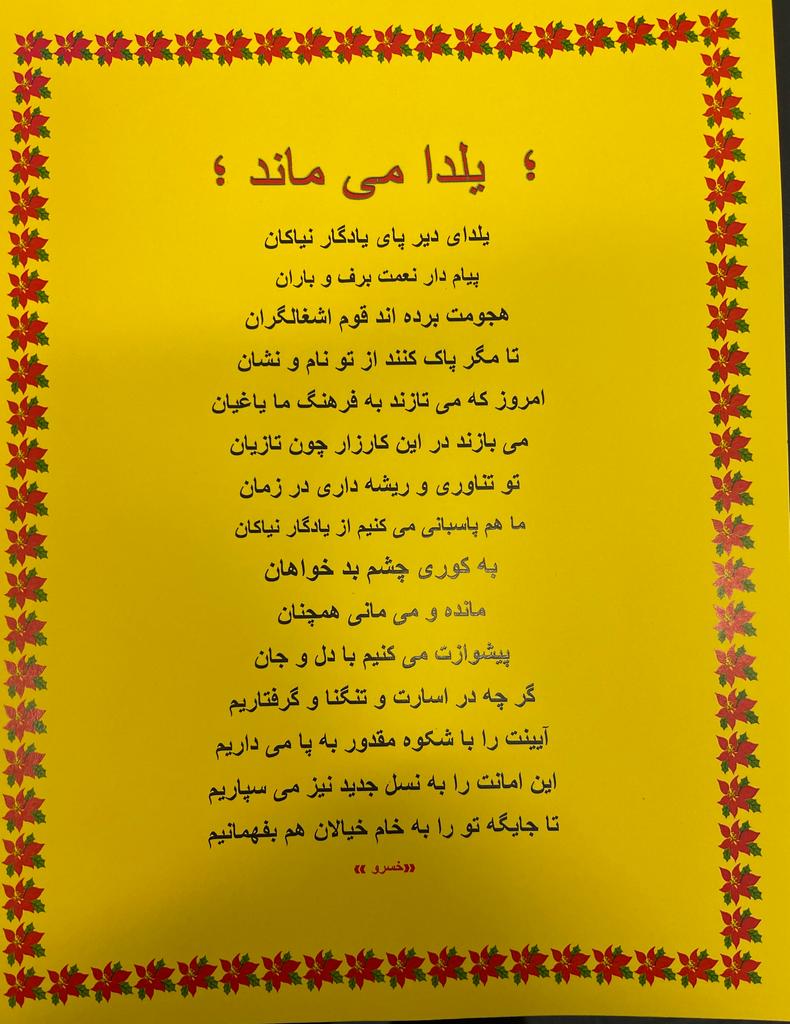 ؛ یلدا می ماند ؛
یلدای دیر پای یادگار نیاکان
پیام دار نعمت برف و باران
هجومت برده اند قوم اشغالگران
تا مگر پاک کنند از تو نام و نشان
امروز که می تازند به فرهنگ ما یاغیان
می بازند در این کارزار چون تازیان
تو تناوری و ریشه داری در زمان
ما هم پاسبانی می کنیم از یادگار نیاکان
به کوری چشم بد خواهان
مانده و می مانی همچنان
پیشوازت می کنیم با دل و جان
گر چه در اسارت و تنگنا و گرفتاریم
آیینت را با شکوه مقدور به پا می داریم
این امانت را به نسل جدید نیز می سپاریم
تا جایگه تو را به خام خیالان هم بفهمانیم
«خسرو »